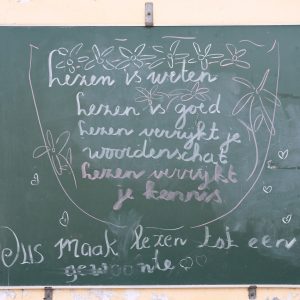 Lezen is weten
Lezen is goed
Lezen verrijkt je
woordenschat
Lezen verrijkt
je kennis
Dus maak lezen tot een
gewoonte